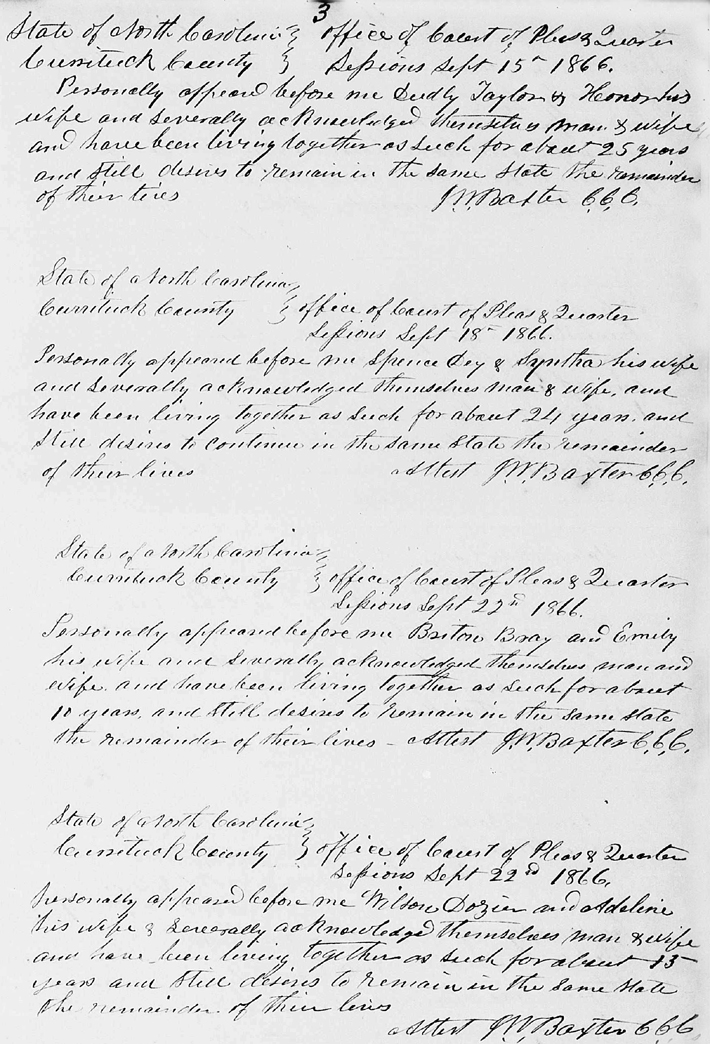 3
State of North Carolina } office of Court of Pleas & Quarter
Currituck County } Sessions Sept 15th 1866.
Personally appeared before me Dudly Taylor & Honor his
wife and severally acknowledged themselves man & wife
and have been living together as such for about 25 years
and still desires to remain in the same state the remainder
of their lives J.W. Baxter C.C.C.
State of North Carolina
Currituck County } office of Court of Pleas & Quarter
Sessions Sept 18th 1866.
Personally appeared before me Spence Dey & Syntha his wife
and severally acknowledged themselves man & wife, and
have been living together as such for about 24 years, and
still desires to continue in the same state the remainder
of their lives Attest J.W. Baxter C.C.C.
State of North Carolina
Currituck County } office of Court of Pleas & Quarter
Sessions Sept 22nd 1866.
Personally appeared before me Briton Bray and Emily
his wife and severally acknowledged themselves man and
wife, and have been living together as such for about
10 years, and still desires to remain in the same state
the remainder of their lives - Attest J.W. Baxter C.C.C.
State of North Carolina
Currituck County } office of Court of Pleas & Quarter
Sessions Sept 22nd 1866.
Personally appeared before me Wilson Dozier and Adeline
his wife & severally acknowledged themselves man & wife
and have been living together as such for about 15
years and still desires to remain in the same state
the remainder of their lives
Attest J.W. Baxter C.C.C.